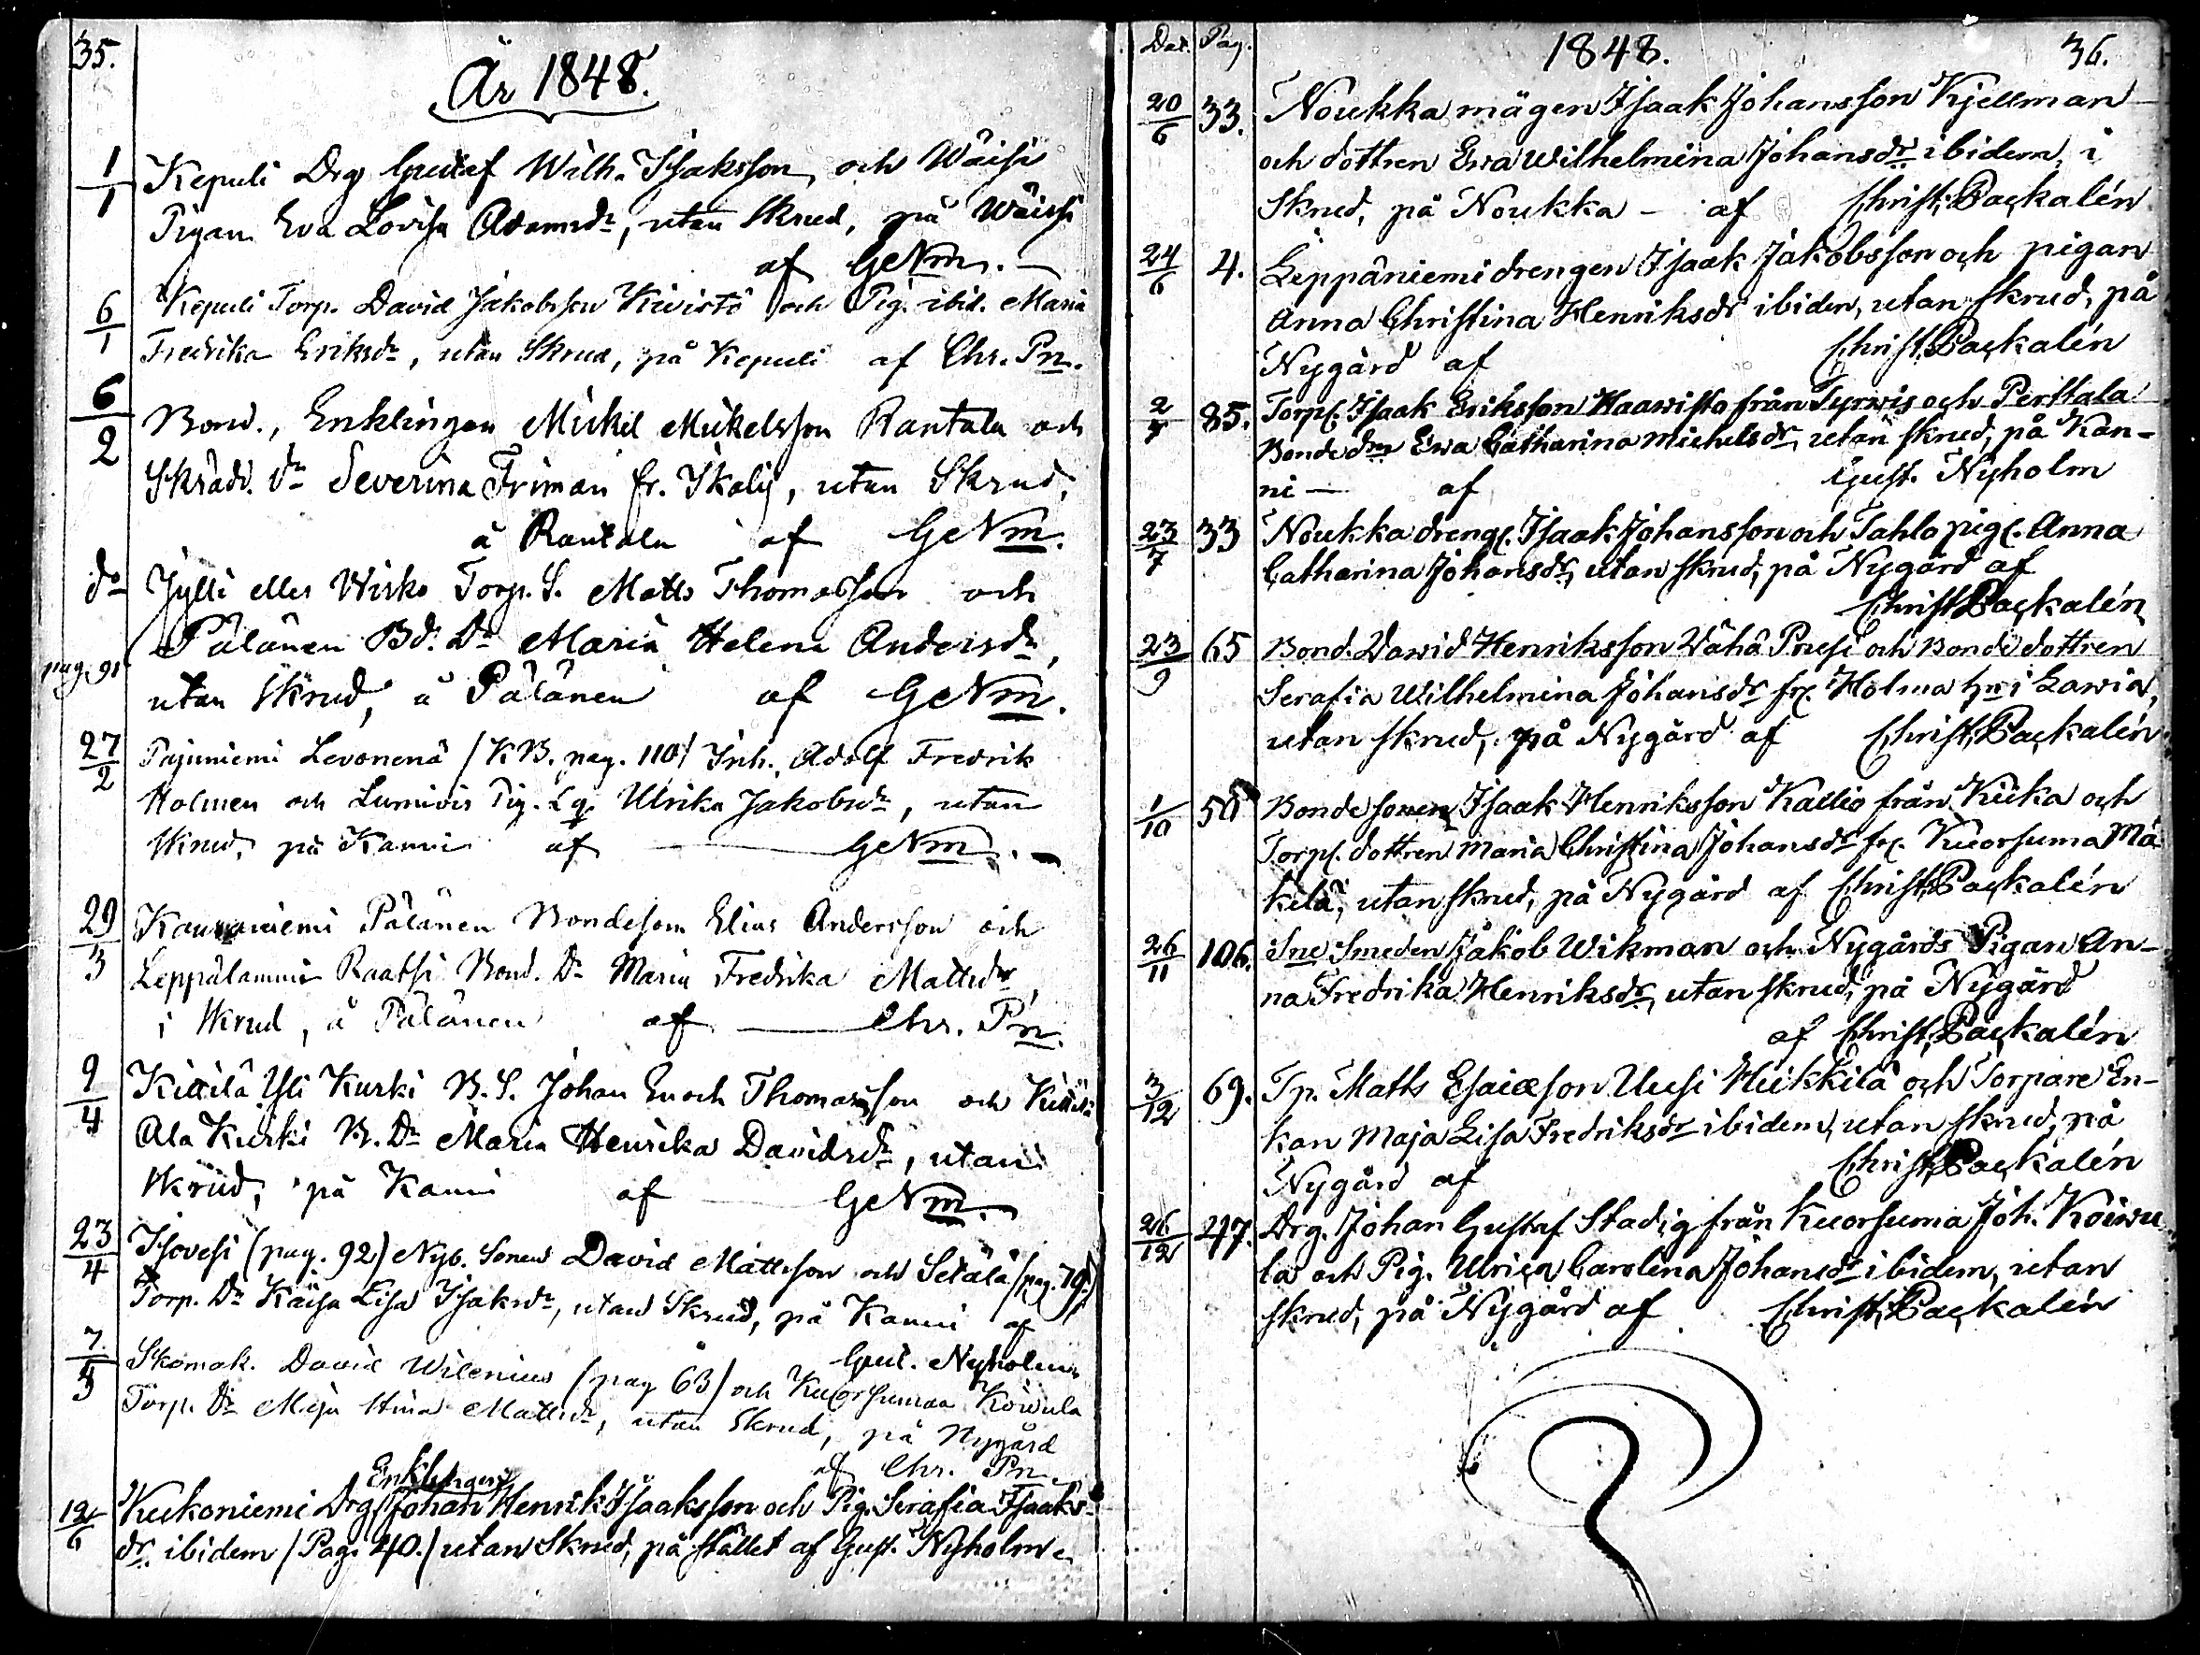 35.
År 1848.
1/1 Kepuli Drg Gustaf Wilh. Isaksson, och Wäisi
Pigan Eva Lovisa Adamsdr, utan Skrud, på Wäissi
af GeNm.
6/1 Kepuli Torp. David Jakobsson Kivistö och Pig. ibid. Maria
Fredrika Eriksdr, utan Skrud, på Kepuli af Chr. Pn.
6/2 Bond., Enklingen Mickel Mickelsson Rantala och
Skrädd. dr Severina Friman fr. Ikalis, utan Skrud,
å Rantala af GeNm.
do Jylli eller Wisko Torp. S. Matts Thomasson och
Pälänen Bd. Dr Maria Helena Andersdr,
pag. 91 utan Skrud, å Pälänen af GeNm.
27/2 Pajuniemi Levonenä /KB. pag. 110/ Inh. Adolf Fredrik
Holmen och Lumivis Pig. Lq. Ulrika Jakobsdr, utan
Skrud, på Kanni af GeNm.
29/3 Pälänen Bondeson Elias Andersson och
Leppälammi Raatsi Bond. Dr Maria Fredrika Mattsdr,
i Skrud, å Pälänen af Chr. Pn.
9/4 Kittilä Yli Kurki B. S. Johan Enoch Thomasson och Kittilä
Ala Kurki B. Dr Maria Henrika Davidsdr, utan
Skrud, på Kanni af GeNm.
23/4 Isovesi (pag. 92) Nyb. Sonen David Mattsson och Setälä (pag. 79.)
Torp. Dr Kaisa Lisa Isaksdr, utan Skrud, på Kanni af
Gust. Nyholm
7/5 Skomak. David Wilenius (pag 63) och Kuorsumaa Koivula
Torp. Dr Maja Stina Mattsdr, utan Skrud, på Nygård
af Chr. Pn.
Enklingen
12/6 Kuckoniemi Drg Johan Henrik Isaaksson och Pig. Serafia Isaaks-
dr. ibidem /Pag. 40./ utan Skrud, på stället af Gust. Nyholm
Dat. Pag. 1848. 36.
20/6 33. Noukka mågen Isaak Johansson Kjellman
och dottren Ewa Wilhelmina Johansdr ibidem, i
Skrud, på Noukka - af Christ. Packalén
24/6 4. Leppäniemi drengen Isaak Jakobsson och pigan
Anna Christina Henriksdr ibidem, utan skrud, på
Nygård af Christ. Packalén
2/7 85. Torp. Isaak Eriksson Haawisto från Tyrwis och Perttala
Bonde dr Ewa Catharina Michelsdr, utan skrud, på Kan-
ni — af Gust. Nyholm
23/7 33 Noukka dreng. Isaak Johansson och Tahlo pig. Anna
Catharina Johansdr, utan skrud, på Nygård af
Christ. Packalén
23/9 65 Bond. Dawid Henriksson Wähä Pnesi och Bonde dottren
Serafia Wilhelmina Johansdr fr. Holma hn i Lawia,
utan skrud, på Nygård af Christ. Packalén
1/10 50 Bonde sonen Isaak Henriksson Kallio från Kiika och
Torp. dottren Maria Christina Johansdr fr. Kuorsuma Mä-
kilä, utan skrud, på Nygård af Christ. Packalén
26/11 106. Sne Smeden Jakob Wikman och Nygårds Pigan An-
na Fredrika Henriksdr, utan skrud, på Nygård
af Christ. Packalén
3/12 69. Tp. Matts Esaiæson Uusi Heikkilä och Torpare En-
kan Maja Lisa Fredriksdr ibidem, utan skrud, på
Nygård af Christ. Packalén
26/12 47. Drg. Johan Gustaf Stadig från Kuorsuma Joh. Koiwu
la och Pig. Ulrica Carolina Johansdr ibidem, utan
skrud, på Nygård af Christ. Packalén